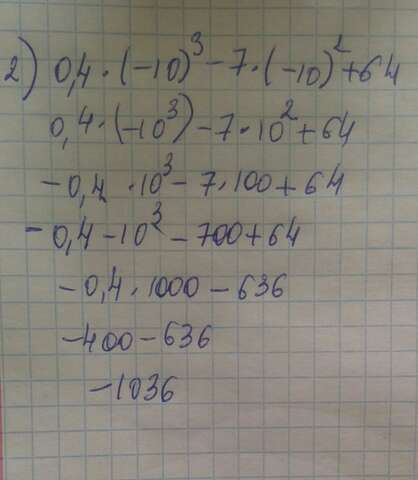 2) 0,4 · (-10)³ - 7 · (-10)² + 64
0,4 · (-10³) - 7 · 10² + 64
- 0,4 · 10³ - 7 · 100 + 64
- 0,4 - 10³ - 700 + 64
- 0,4 · 1000 - 636
- 400 - 636
- 1036